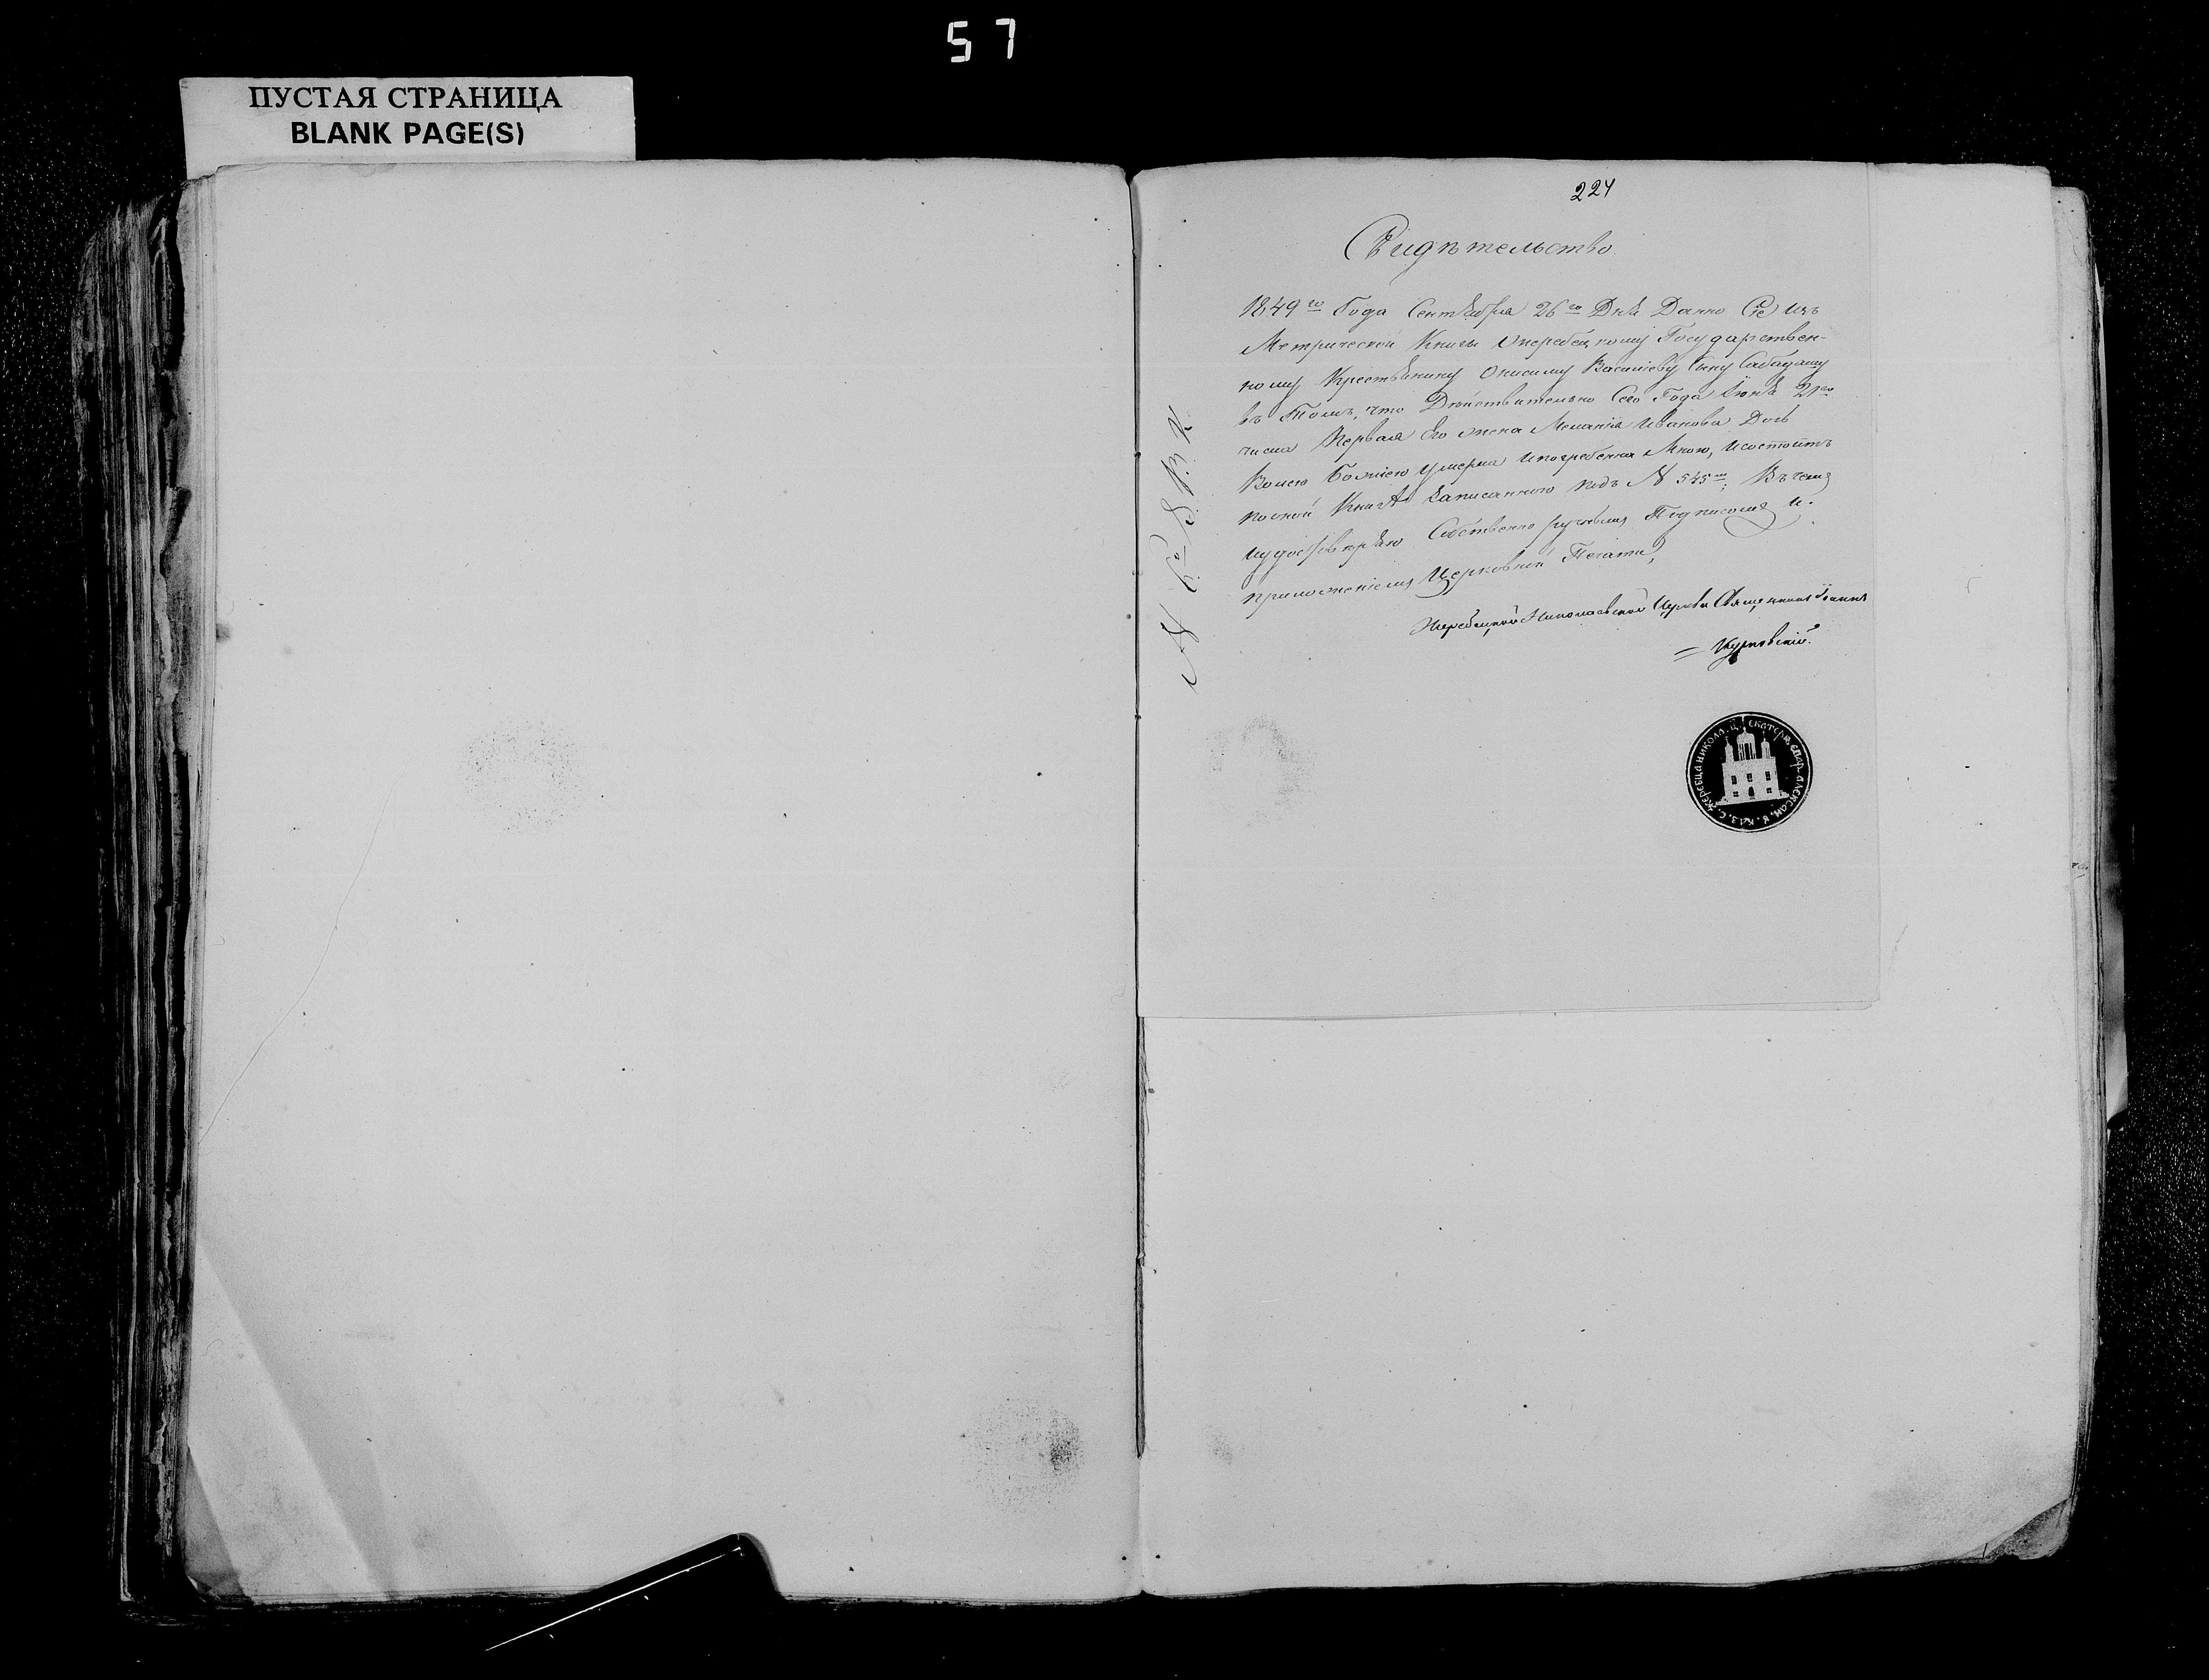 57
ПУСТАЯ СТРАНИЦА
BLANK PAGE(S)
224
Свидѣтельство.
1849го Года Сентября 26го Дня Данно Сіе изъ
Метрической Книги Жеребецкому Государствен-
ному Крестьянину Онисиму Василіеву Сыну Сабадашу
въ Томъ, что Дѣйствительно Сего Года Іюня 21го
числа Первая Его жена Меланія Иванова Дочь
Волею Божіею умерла и погребенна Мною, и состоитъ
по оной Книгѣ Записанною подъ № 545м; Въ чемъ
и удостовѣряю Собственно ручнымъ Подписомъ и
приложеніемъ Церковной Печати,
Жеребецкой Николаевской Церкви Священникъ Іоаннъ
С. ЖЕРЕБЦА НИКОЛА. Ц. ЕКАТЕРИ. ЕПАР. АЛЕКСАН. У.